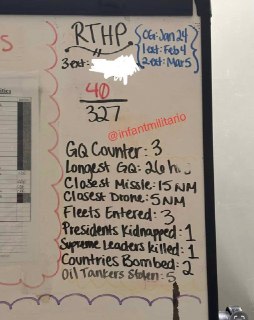 RTHP
OG: Jan 24
1ext: Feb 4
2ext: Mar 5
3ext:
40
327
@infantmilitario
GQ Counter: 3
Longest GQ: 26 hrs
Closest Missle: 15 NM
Closest Drone: 5 NM
Fleets Entered: 3
Presidents Kidnapped: 1
Supreme Leaders killed: 1
Countries Bombed: 2
Oil Tankers Stolen: 5